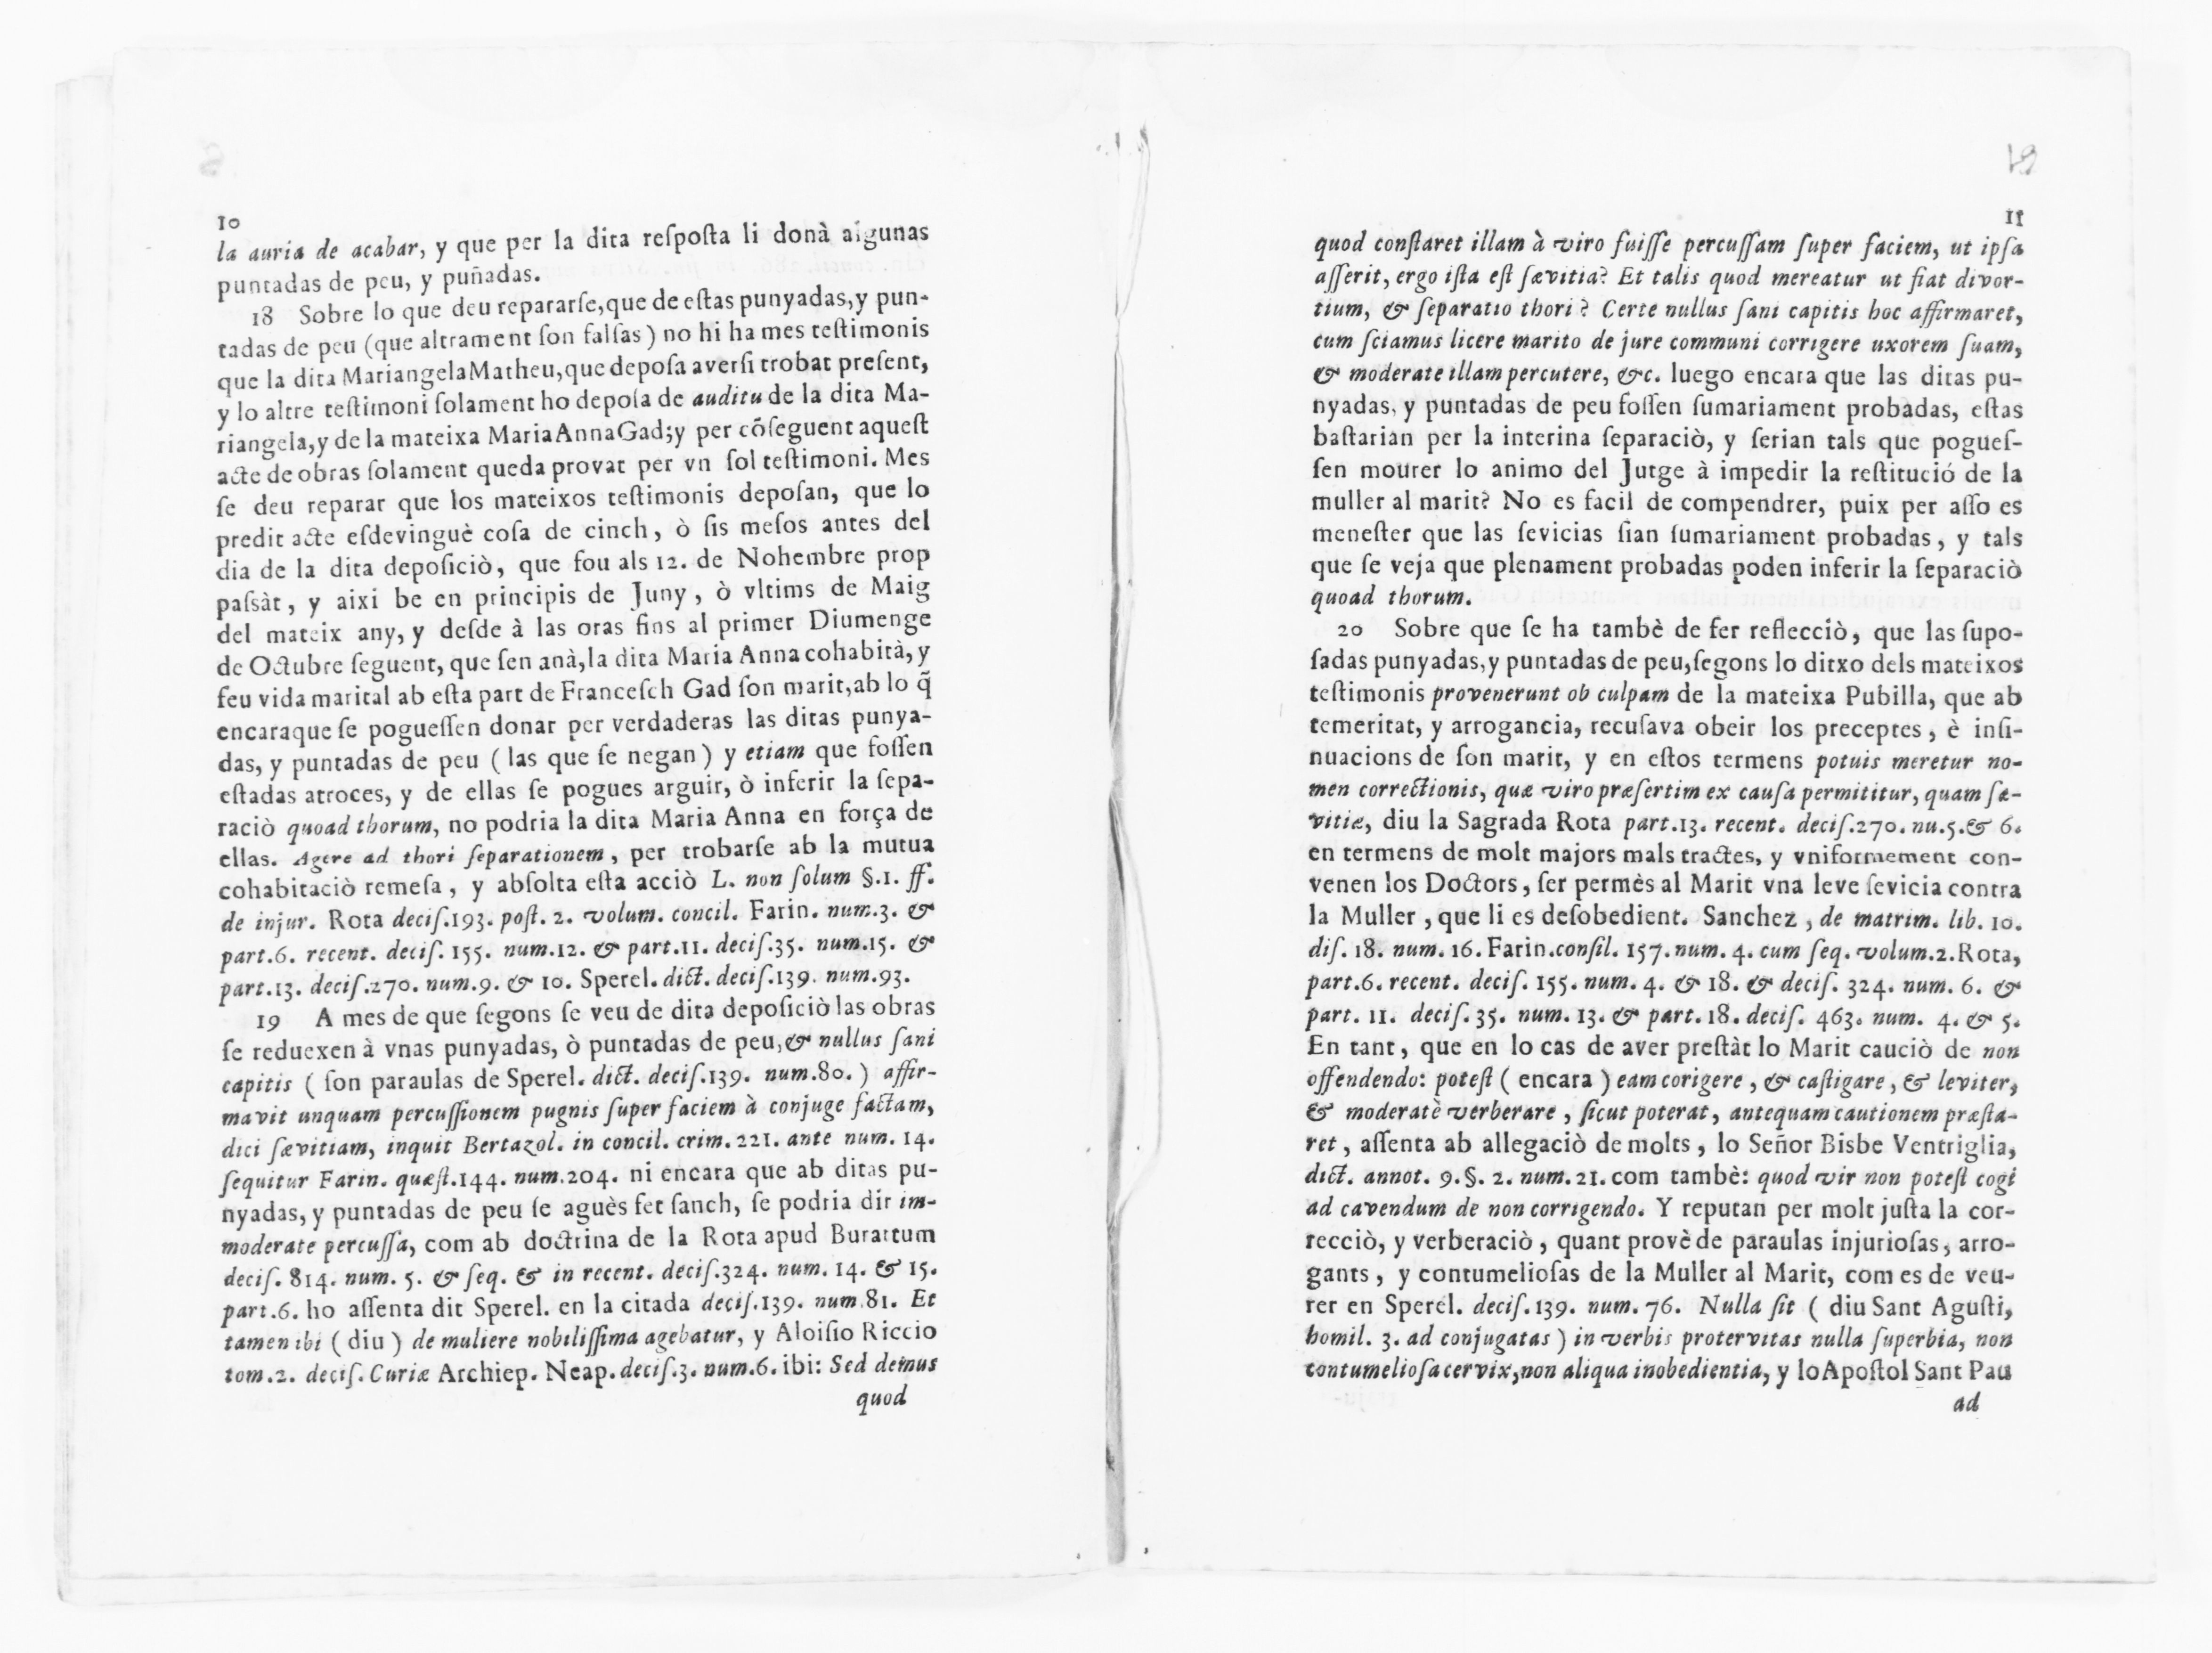 10
la auria de acabar, y que per la dita resposta li donà algunas
puntadas de peu, y puñadas.
18 Sobre lo que deu repararse, que de estas punyadas, y pun-
tadas de peu (que altrament son falsas) no hi ha mes testimonis
que la dita Mariangela Matheu, que deposa aversi trobat present,
y lo altre testimoni solament ho deposa de auditu de la dita Ma-
riangela, y de la mateixa Maria Anna Gad; y per cõseguent aquest
acte de obras solament queda provat per vn sol testimoni. Mes
se deu reparar que los mateixos testimonis deposan, que lo
predit acte esdevinguè cosa de cinch, ò sis mesos antes del
dia de la dita deposiciò, que fou als 12. de Nohembre prop
passàt, y aixi be en principis de Juny, ò vltims de Maig
del mateix any, y desde à las oras fins al primer Diumenge
de Octubre seguent, que sen anà, la dita Maria Anna cohabità, y
feu vida marital ab esta part de Francesch Gad son marit, ab lo q̃
encaraque se poguessen donar per verdaderas las ditas punya-
das, y puntadas de peu (las que se negan) y etiam que fossen
estadas atroces, y de ellas se pogues arguir, ò inferir la sepa-
raciò quoad thorum, no podria la dita Maria Anna en força de
ellas. Agere ad thori separationem, per trobarse ab la mutua
cohabitaciò remesa, y absolta esta acciò L. non solum §.1. ff.
de injur. Rota decis.193. post. 2. volum. concil. Farin. num.3. &
part.6. recent. decis. 155. num.12. & part.11. decis.35. num.15. &
part.13. decis.270. num.9. & 10. Sperel. dict. decis.139. num.93.
19 A mes de que segons se veu de dita deposiciò las obras
se reduexen à vnas punyadas, ò puntadas de peu, & nullus sani
capitis (son paraulas de Sperel. dict. decis.139. num.80.) affir-
mavit unquam percussionem pugnis super faciem à conjuge factam,
dici sævitiam, inquit Bertazol. in concil. crim. 221. ante num. 14.
sequitur Farin. quæst.144. num.204. ni encara que ab ditas pu-
nyadas, y puntadas de peu se aguès fet sanch, se podria dir im-
moderate percussa, com ab doctrina de la Rota apud Burattum
decis. 814. num. 5. & seq. & in recent. decis.324. num. 14. & 15.
part.6. ho assenta dit Sperel. en la citada decis.139. num.81. Et
tamen ibi (diu) de muliere nobilissima agebatur, y Aloisio Riccio
tom.2. decis. Curiæ Archiep. Neap. decis.3. num.6. ibi: Sed demus
quod
11
quod constaret illam à viro fuisse percussam super faciem, ut ipsa
asserit, ergo ista est sævitia? Et talis quod mereatur ut fiat divor-
tium, & separatio thori? Certe nullus sani capitis hoc affirmaret,
cum sciamus licere marito de jure communi corrigere uxorem suam,
& moderate illam percutere, &c. luego encara que las ditas pu-
nyadas, y puntadas de peu fossen sumariament probadas, estas
bastarian per la interina separaciò, y serian tals que pogues-
sen mourer lo animo del Jutge à impedir la restitució de la
muller al marit? No es facil de compendrer, puix per asso es
menester que las sevicias sian sumariament probadas, y tals
que se veja que plenament probadas poden inferir la separaciò
quoad thorum.
20 Sobre que se ha tambè de fer reflecciò, que las supo-
sadas punyadas, y puntadas de peu, segons lo ditxo dels mateixos
testimonis provenerunt ob culpam de la mateixa Pubilla, que ab
temeritat, y arrogancia, recusava obeir los preceptes, è insi-
nuacions de son marit, y en estos termens potuis meretur no-
men correctionis, quæ viro præsertim ex causa permititur, quam sæ-
vitiæ, diu la Sagrada Rota part.13. recent. decis.270. nu.5. & 6.
en termens de molt majors mals tractes, y vniformement con-
venen los Doctors, ser permès al Marit vna leve sevicia contra
la Muller, que li es desobedient. Sanchez, de matrim. lib. 10.
dis. 18. num. 16. Farin. consil. 157. num. 4. cum seq. volum.2. Rota,
part.6. recent. decis. 155. num. 4. & 18. & decis. 324. num. 6. &
part. 11. decis. 35. num. 13. & part. 18. decis. 463. num. 4. & 5.
En tant, que en lo cas de aver prestàt lo Marit cauciò de non
offendendo: potest (encara) eam corigere, & castigare, & leviter,
& moderatè verberare, sicut poterat, antequam cautionem præsta-
ret, assenta ab allegaciò de molts, lo Señor Bisbe Ventriglia,
dict. annot. 9. §. 2. num. 21. com tambè: quod vir non potest cogi
ad cavendum de non corrigendo. Y reputan per molt justa la cor-
recciò, y verberaciò, quant provè de paraulas injuriosas, arro-
gants, y contumeliosas de la Muller al Marit, com es de veu-
rer en Sperel. decis. 139. num. 76. Nulla sit (diu Sant Agusti,
homil. 3. ad conjugatas) in verbis protervitas nulla superbia, non
contumeliosa cervix, non aliqua inobedientia, y lo Apostol Sant Pau
ad